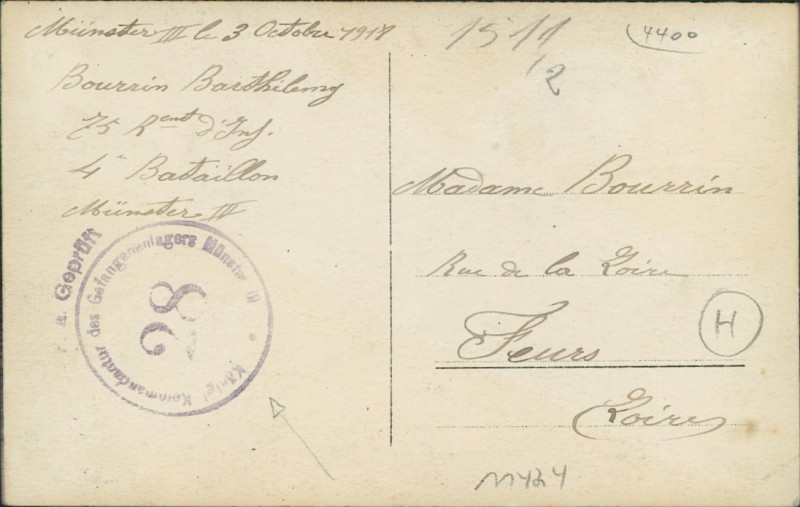 Münster III le 3 Octobre 1918
Bourrin Barthilemy
75 Rent d'Inf.
4e Bataillon
Münster III
Geprüft
Königl Kommandantur des Gefangenenlagers Münster III
28
1511
12
4400
Madame Bourrin
Rue de la Loire
Feurs
H
Loire
M424